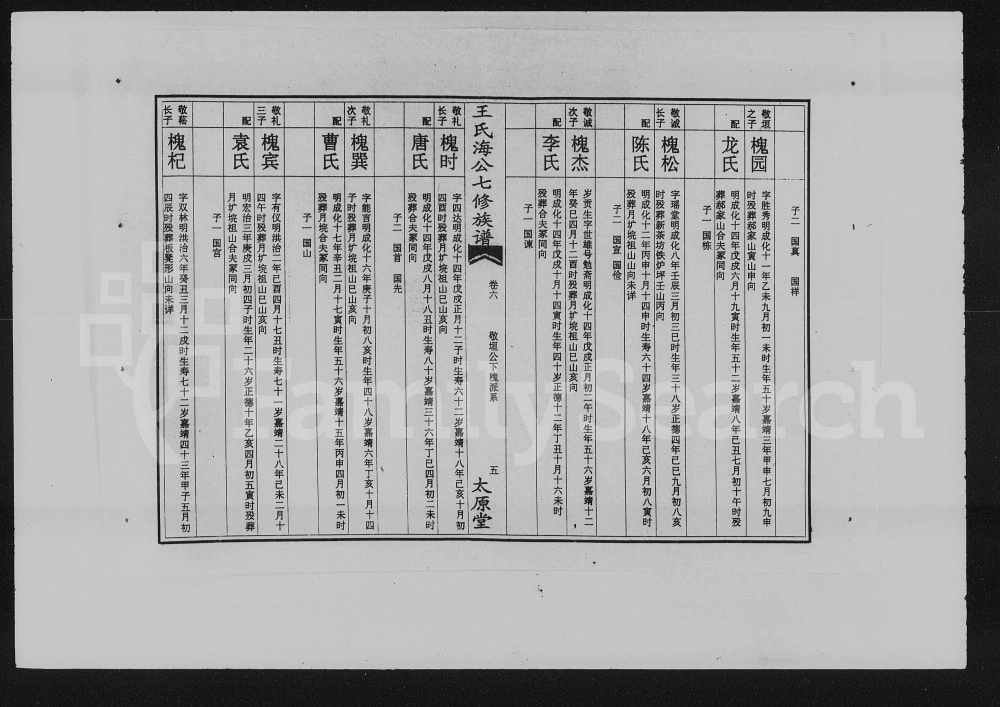 子二 国真 国祥
敬垣之子
槐园
字胜秀明成化十一年乙未九月初一未时生年五十岁嘉靖三年甲申七月初九申时殁葬郝家山寅山申向
配
龙氏
明成化十四年戊戌六月十九寅时生年五十二岁嘉靖八年己丑七月初十午时殁葬郝家山合夫冢同向
子一 国栋
敬诚长子
槐松
字瑶堂明成化八年壬辰三月初三巳时生年三十八岁正德四年己巳九月初八亥时殁葬新茶坊铁炉坪壬山丙向
配
陈氏
明成化十二年丙申十月十四申时生寿六十四岁嘉靖十八年己亥六月初八寅时殁葬月圹垸祖山山向未详
子二 国宣 国佺
敬诚次子
槐杰
岁贡生字世雄号勉斋明成化十四年戊戌正月初二午时生年五十六岁嘉靖十二年癸巳四月十二酉时殁葬月圹垸祖山巳山亥向
配
李氏
明成化十四年戊戌十月十四寅时生年四十岁正德十二年丁丑十月十六未时殁葬合夫冢同向
子一 国谏
王氏海公七修族谱
卷六
敬垣公下槐派系
五
太原堂
敬礼长子
槐时
字四达明成化十四年戊戌正月十二子时生寿六十二岁嘉靖十八年己亥十月初四酉时殁葬月圹垸祖山巳山亥向
配
唐氏
明成化十四年戊戌八月十八丑时生寿八十岁嘉靖三十六年丁巳四月初二未时殁葬合夫冢同向
子二 国首 国先
敬礼次子
槐巽
字能言明成化十六年庚子十月初八亥时生年四十八岁嘉靖六年丁亥十月十四子时殁葬月圹垸祖山巳山亥向
配
曹氏
明成化十七年辛丑二月十七寅时生年五十六岁嘉靖十五年丙申四月初一未时殁葬月垸合夫冢同向
子一 国山
敬礼三子
槐宾
字有仪明洪治二年己酉四月十七丑时生寿七十一岁嘉靖二十八年己未二月十四午时殁葬月圹垸祖山巳山亥向
配
袁氏
明宏治三年庚戌三月初四子时生年二十六岁正德十年乙亥四月初五寅时殁葬月圹垸祖山合夫冢同向
子一 国宫
敬菘长子
槐杞
字双林明洪治六年癸丑三月十二戌时生寿七十二岁嘉靖四十三年甲子五月初四辰时殁葬板凳形山向未详
FamilySearch